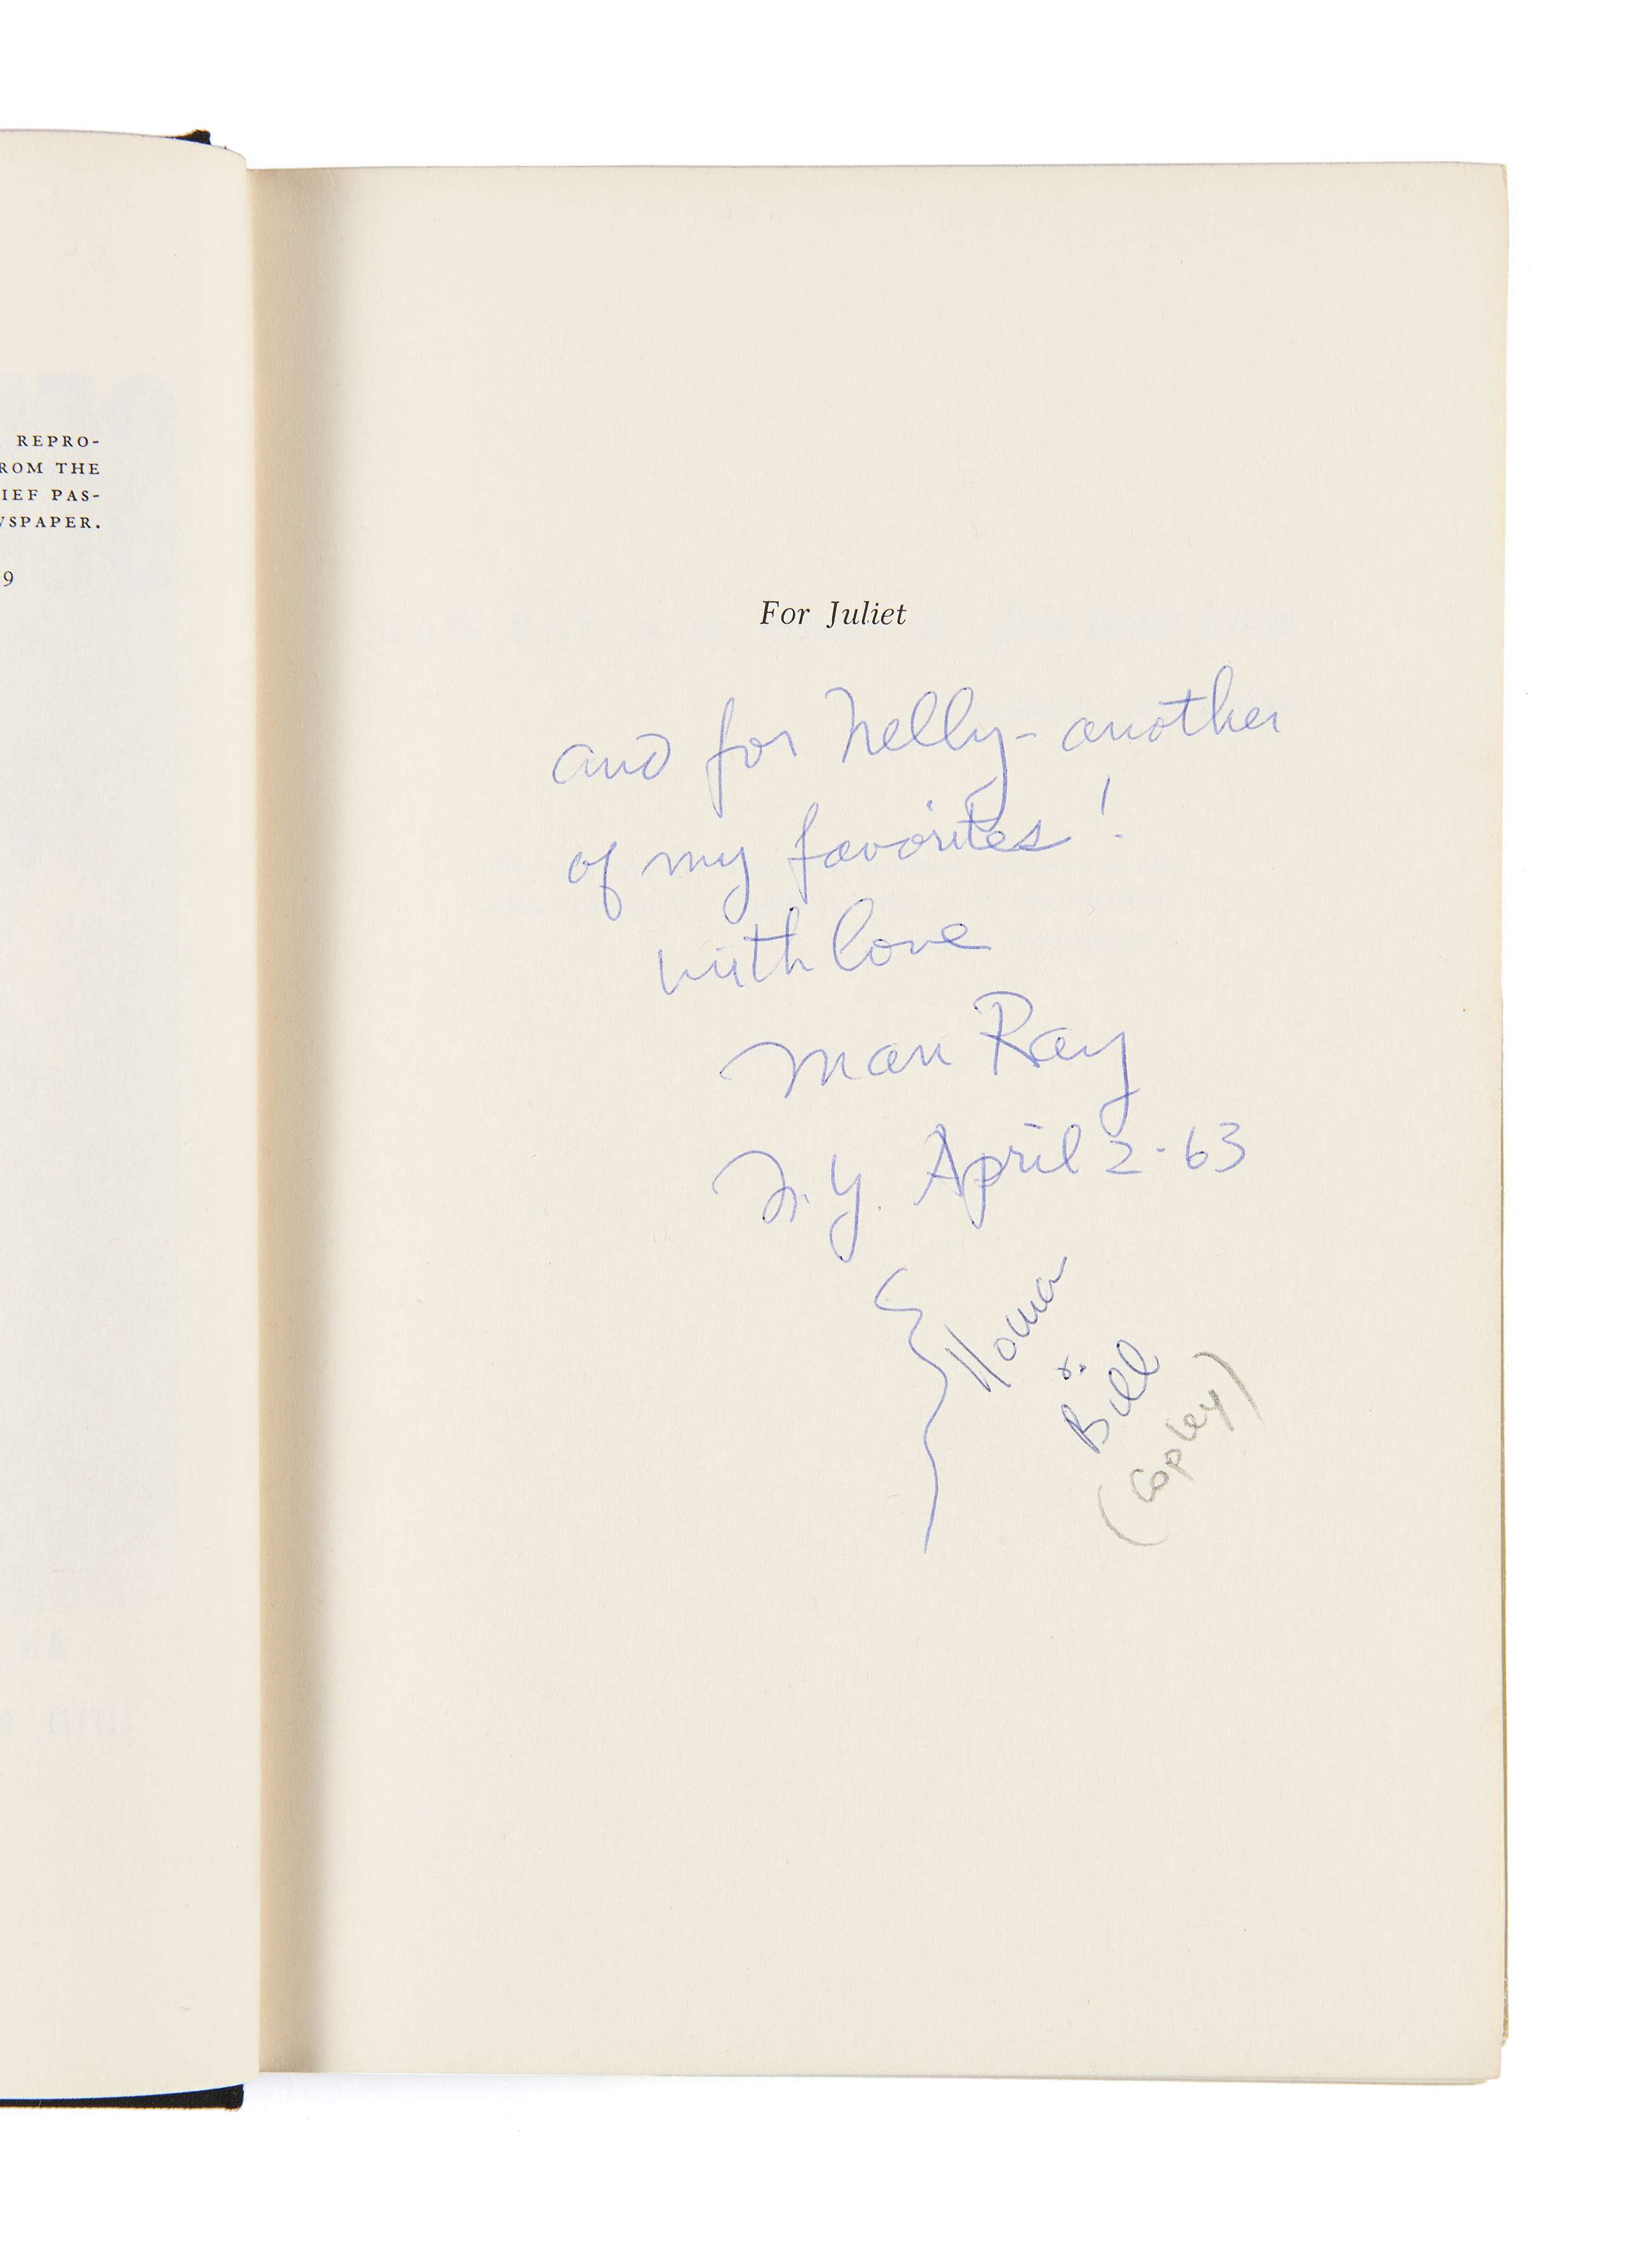 REPRO-
ROM THE
IEF PAS-
WSPAPER.
9
For Juliet
and for Nelly - another
of my favorites!
with love
Man Ray
N.Y. April 2-63
Noma
&
Bill
(Copley)